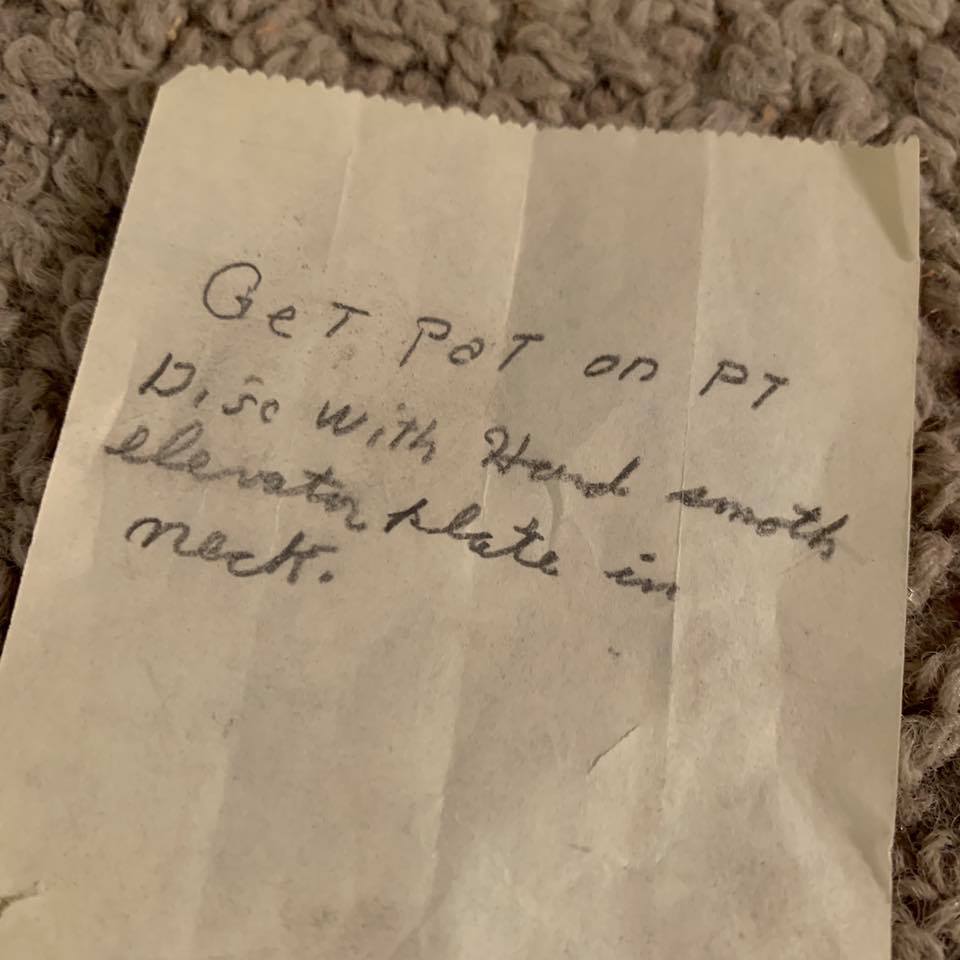 GeT PaT on PT
Disc with Hand smoth
elevator plate in
neck.